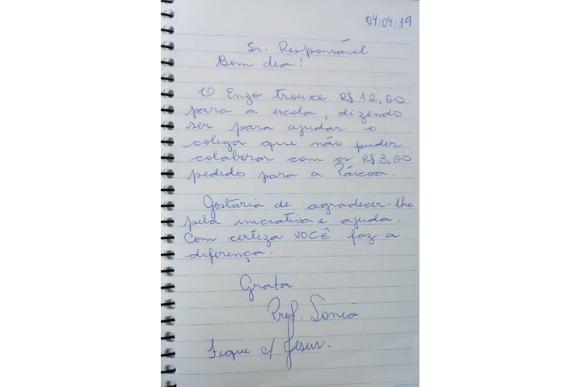 04/04/19
Sr. Responsável
Bom dia!
O Enzo trouxe R$ 12,00
para a escola, dizendo
ser para ajudar o
colega que não puder
colaborar com os R$ 3,00
pedido para a Páscoa.
Gostaria de agradecer-lhe
pela iniciativa e ajuda.
Com certeza VOCÊ faz a
diferença.
Grata
Prof. Sonia
Fique c/ Jesus.